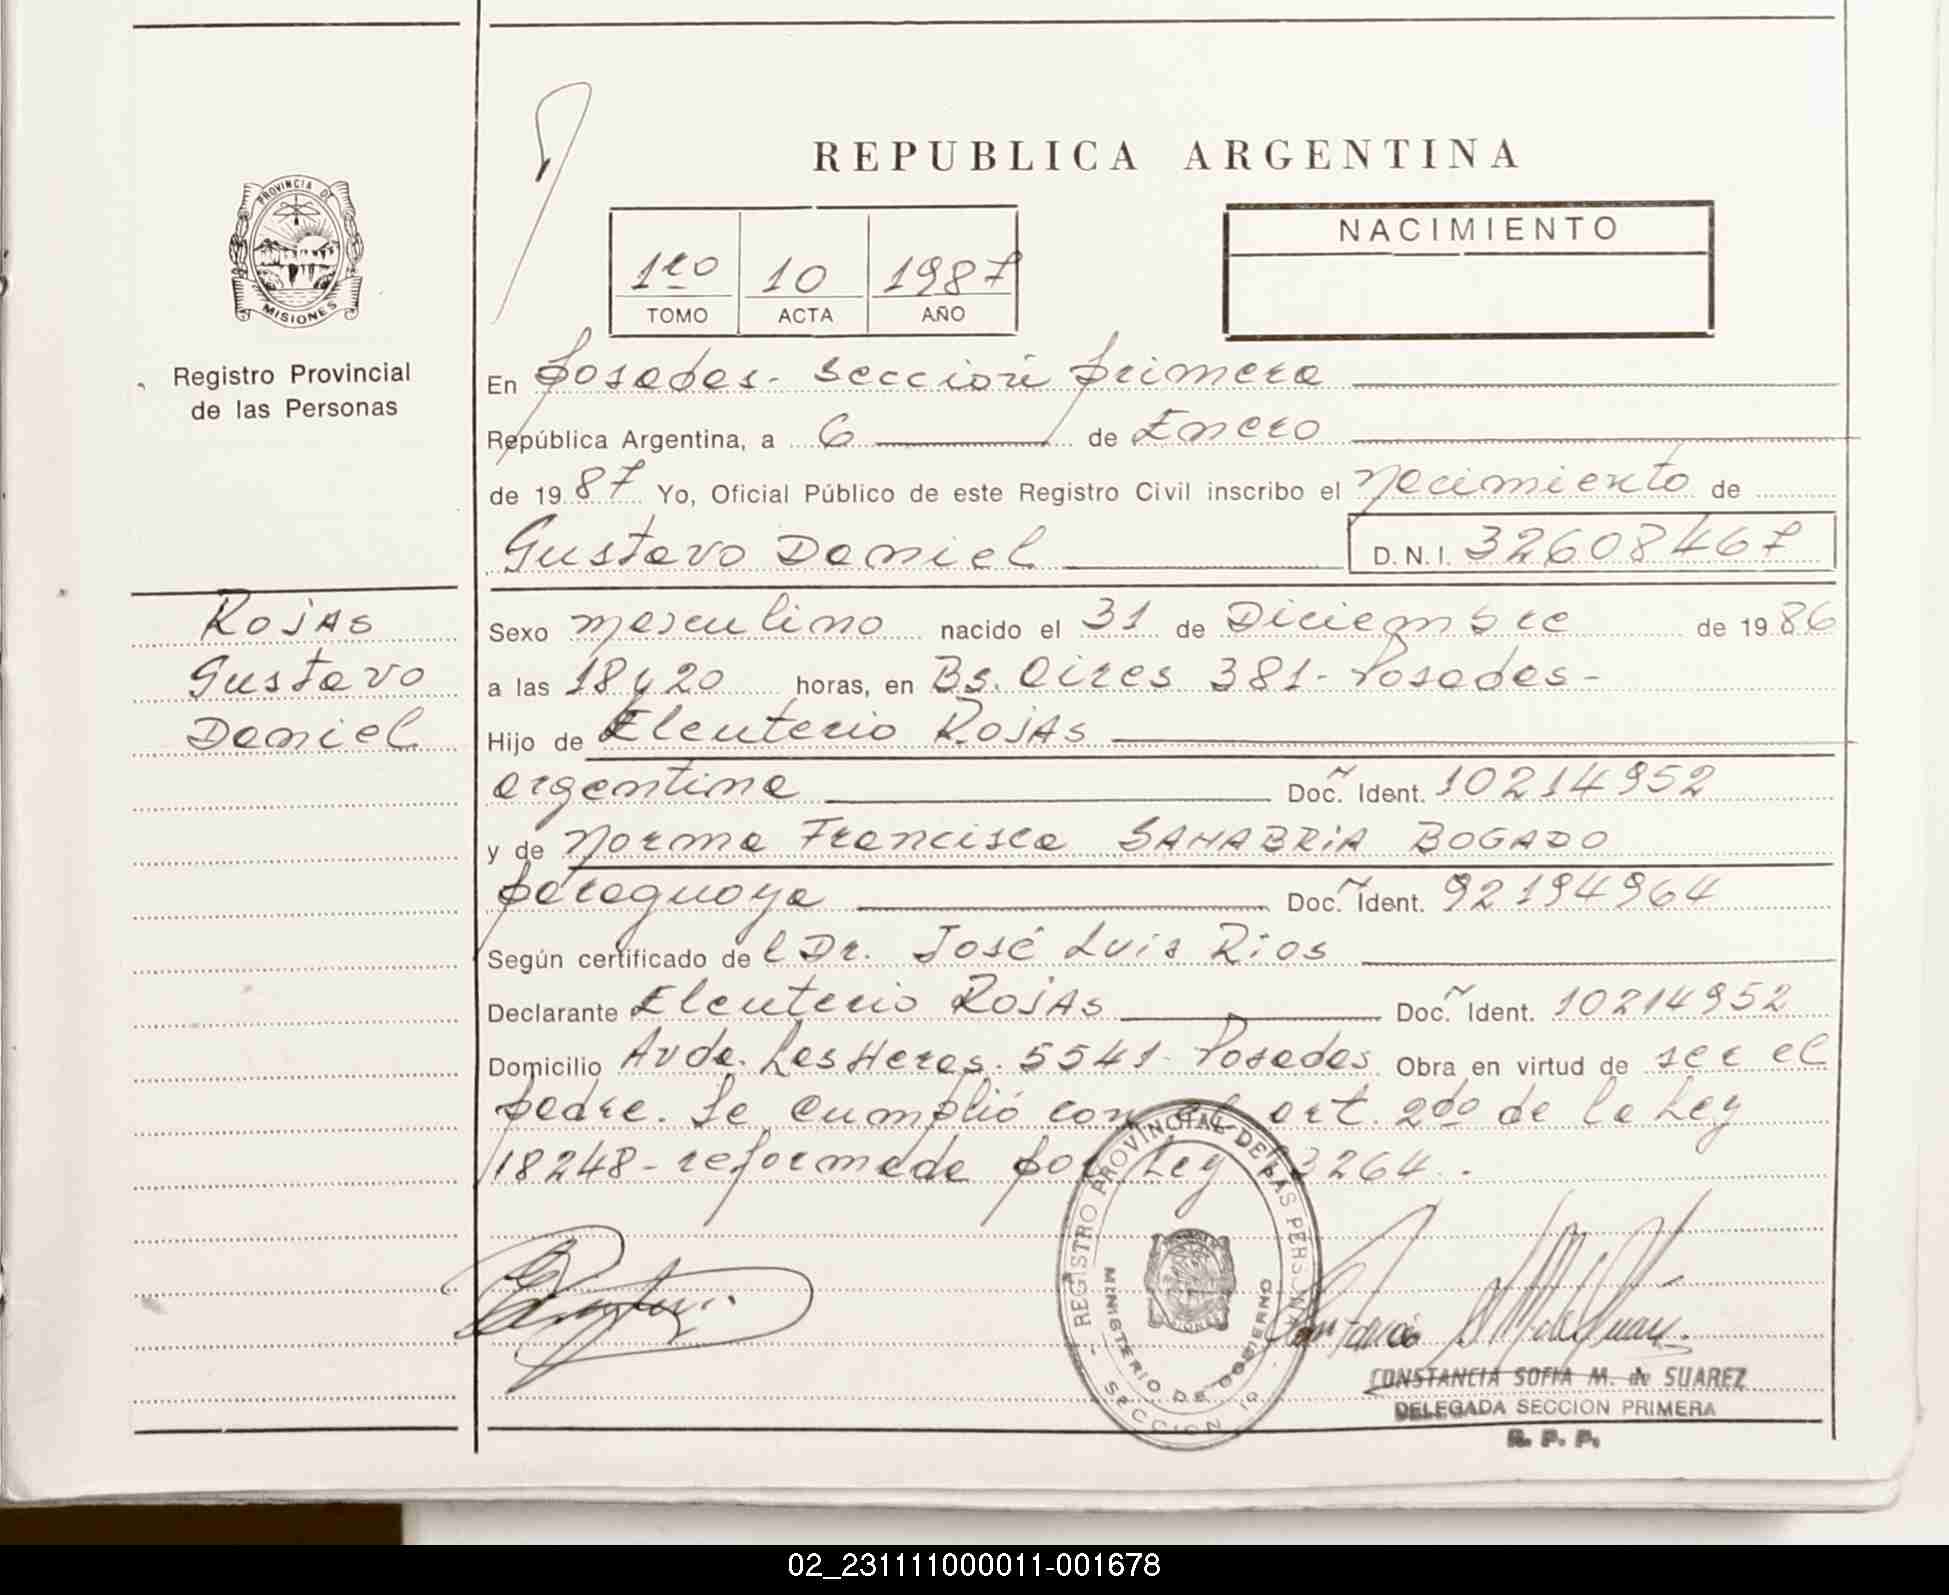 REPUBLICA ARGENTINA
PROVINCIA DE
MISIONES
Registro Provincial
de las Personas
1ro 10 1987
TOMO ACTA AÑO
NACIMIENTO
En Posadas - Sección primera
República Argentina, a 6 de Enero
de 1987 Yo, Oficial Público de este Registro Civil inscribo el Nacimiento de
Gustavo Daniel D.N.I. 32608467
Rojas
Gustavo
Daniel
Sexo masculino nacido el 31 de Diciembre de 1986
a las 18 y 20 horas, en Bs. Aires 381 - Posadas -
Hijo de Eleuterio Rojas
argentina Doc. Ident. 10214952
y de Norma Francisca SANABRIA BOGADO
paraguaya Doc. Ident. 92194964
Según certificado del Dr. José Luis Rios
Declarante Eleuterio Rojas Doc. Ident. 10214952
Domicilio Avda. Las Heras. 5541 - Posadas Obra en virtud de ser el
padre. Se cumplió con el art. 2do de la Ley
18248 - reformada por Ley 23264.
REGISTRO PROVINCIAL DE LAS PERSONAS
MINISTERIO DE GOBIERNO
SECCION 1a
CONSTANCIA SOFIA M. de SUAREZ
DELEGADA SECCION PRIMERA
R. P. P.
02_231111000011-001678